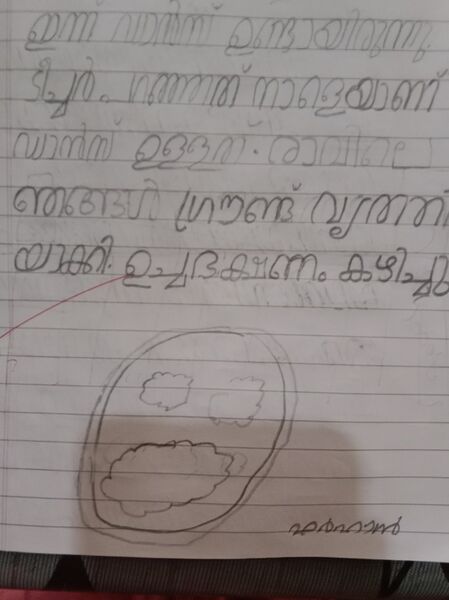 ഇന്ന് ഡാൻസ് ഉണ്ടായിരുന്നു
ടീച്ചർ പറഞ്ഞത് നാളെയാണ്
ഡാൻസ് ഉള്ളത്. രാവിലെ
ഞങ്ങൾ ഗ്രൗണ്ട് വൃത്തി
യാക്കി. ഉച്ചഭക്ഷണം കഴിച്ചു
ഫർഹാൻ